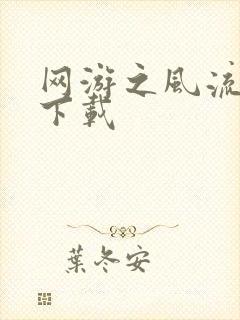 网游之風流
下載
葉冬安